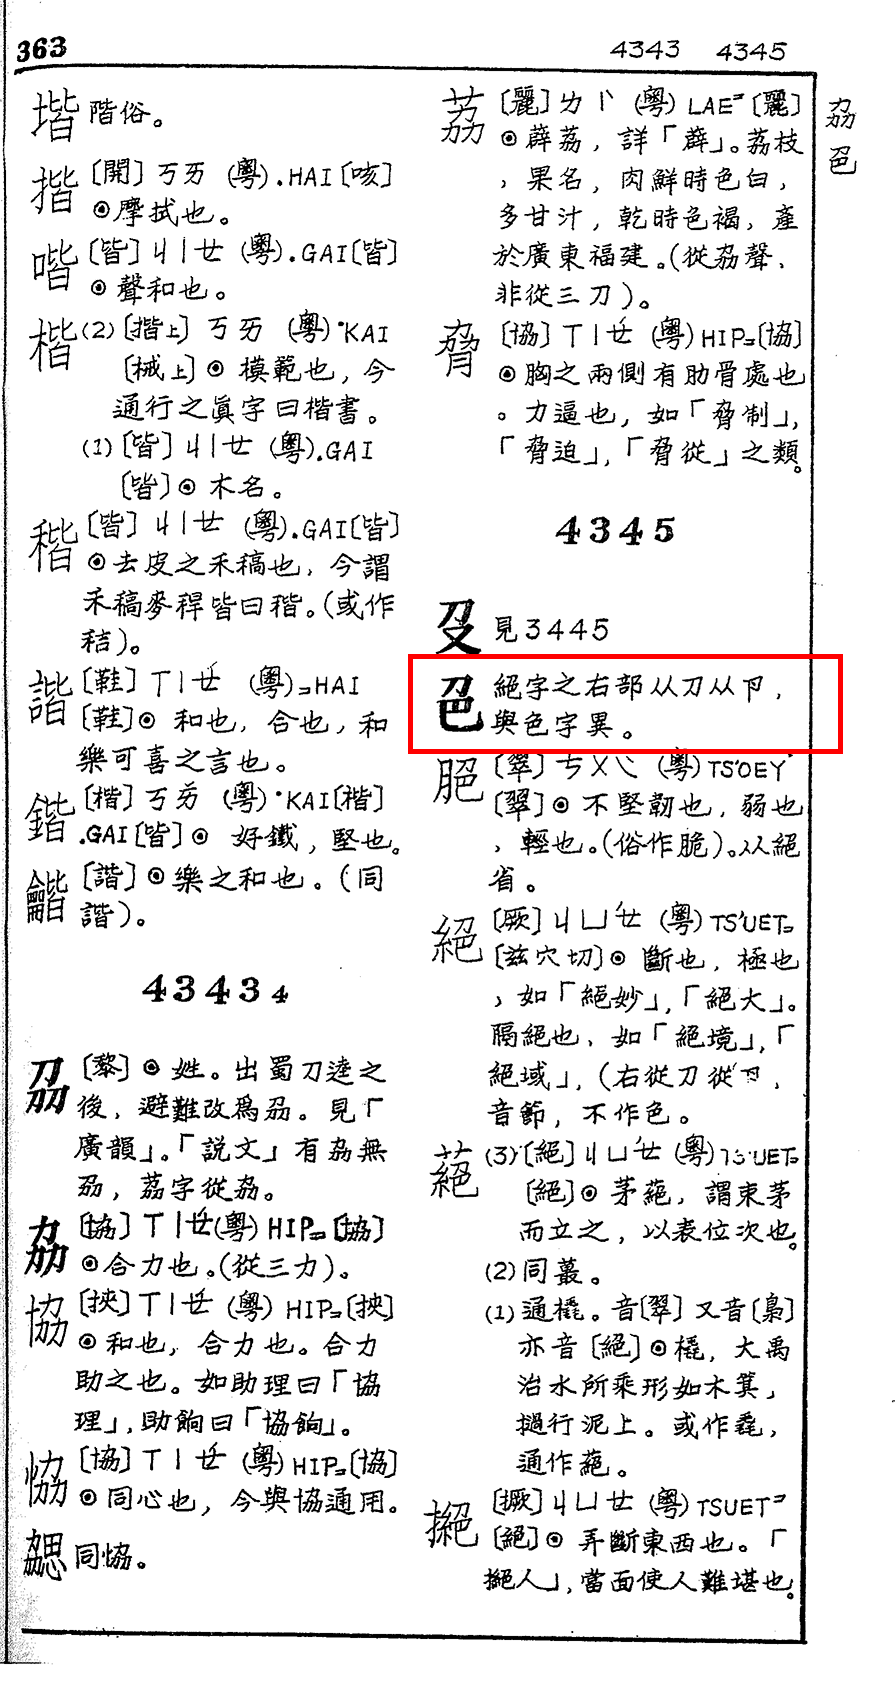 363
4343 4345
刕 巴
堦 階俗。
揩 〔開〕ㄎㄞ (粵).HAI〔咳〕
⊙摩拭也。
喈 〔皆〕ㄐㄧㄝ (粵).GAI〔皆〕
⊙聲和也。
楷 (2)〔揩上〕ㄎㄞ (粵)·KAI
〔械上〕⊙模範也,今
通行之眞字曰楷書。
(1)〔皆〕ㄐㄧㄝ (粵).GAI
〔皆〕⊙木名。
稭 〔皆〕ㄐㄧㄝ (粵).GAI〔皆〕
⊙去皮之禾稿也,今謂
禾稿麥稈皆曰稭。(或作
秸)。
諧 〔鞋〕ㄒㄧㄝˊ (粵)=HAI
〔鞋〕⊙和也,合也,和
樂可喜之言也。
鍇 〔楷〕ㄎㄞˇ (粵)·KAI〔楷〕
.GAI〔皆〕⊙好鐵,堅也。
龤 〔諧〕⊙樂之和也。(同
諧)。
43434
刕 〔黎〕⊙姓。出蜀刀逵之
後,避難改爲刕。見「
廣韻」。「說文」有劦無
刕,荔字從劦。
劦 〔協〕ㄒㄧㄝˊ(粵)HIP=〔協〕
⊙合力也。(從三力)。
協 〔挾〕ㄒㄧㄝˊ (粵)HIP=〔挾〕
⊙和也,合力也。合力
助之也。如助理曰「協
理」,助餉曰「協餉」。
恊 〔協〕ㄒㄧㄝˊ (粵)HIP=〔協〕
⊙同心也,今與協通用。
勰 同恊。
荔 〔麗〕ㄌㄧˋ (粵)LAE=〔麗〕
⊙薜荔,詳「薜」。荔枝
,果名,肉鮮時色白,
多甘汁,乾時色褐,產
於廣東福建。(從劦聲、
非從三刀)。
脅 〔協〕ㄒㄧㄝˊ (粵)HIP=〔協〕
⊙胸之兩側有肋骨處也
。力逼也,如「脅制」,
「脅迫」,「脅從」之類。
4345
刄 見3445
絕字之右部从刀从卪,
與色字異。
脃 〔翠〕ㄘㄨㄟˋ (粵)TS'OEY
〔翠〕⊙不堅韌也,弱也
,輕也。(俗作脆)。从絕
省。
絕 〔厥〕ㄐㄩㄝˊ (粵)TS'UET=
〔兹穴切〕⊙斷也,極也
,如「絕妙」,「絕大」。
隔絕也、如「絕境」,「
絕域」,(右從刀從卪,
音節,不作色。
蕝 (3)〔絕〕ㄐㄩㄝˊ (粵)TS'UET=
〔絕〕⊙茅蕝,謂束茅
而立之,以表位次也。
(2)同蕞。
(1)通橇。音〔翠〕又音〔梟〕
亦音〔絕〕⊙橇,大禹
治水所乘形如木箕,
擿行泥上。或作毳,
通作蕝。
〔撅〕ㄐㄩㄝ (粵)TSUET=
〔絕〕⊙弄斷東西也。「
人」,當面使人難堪也。